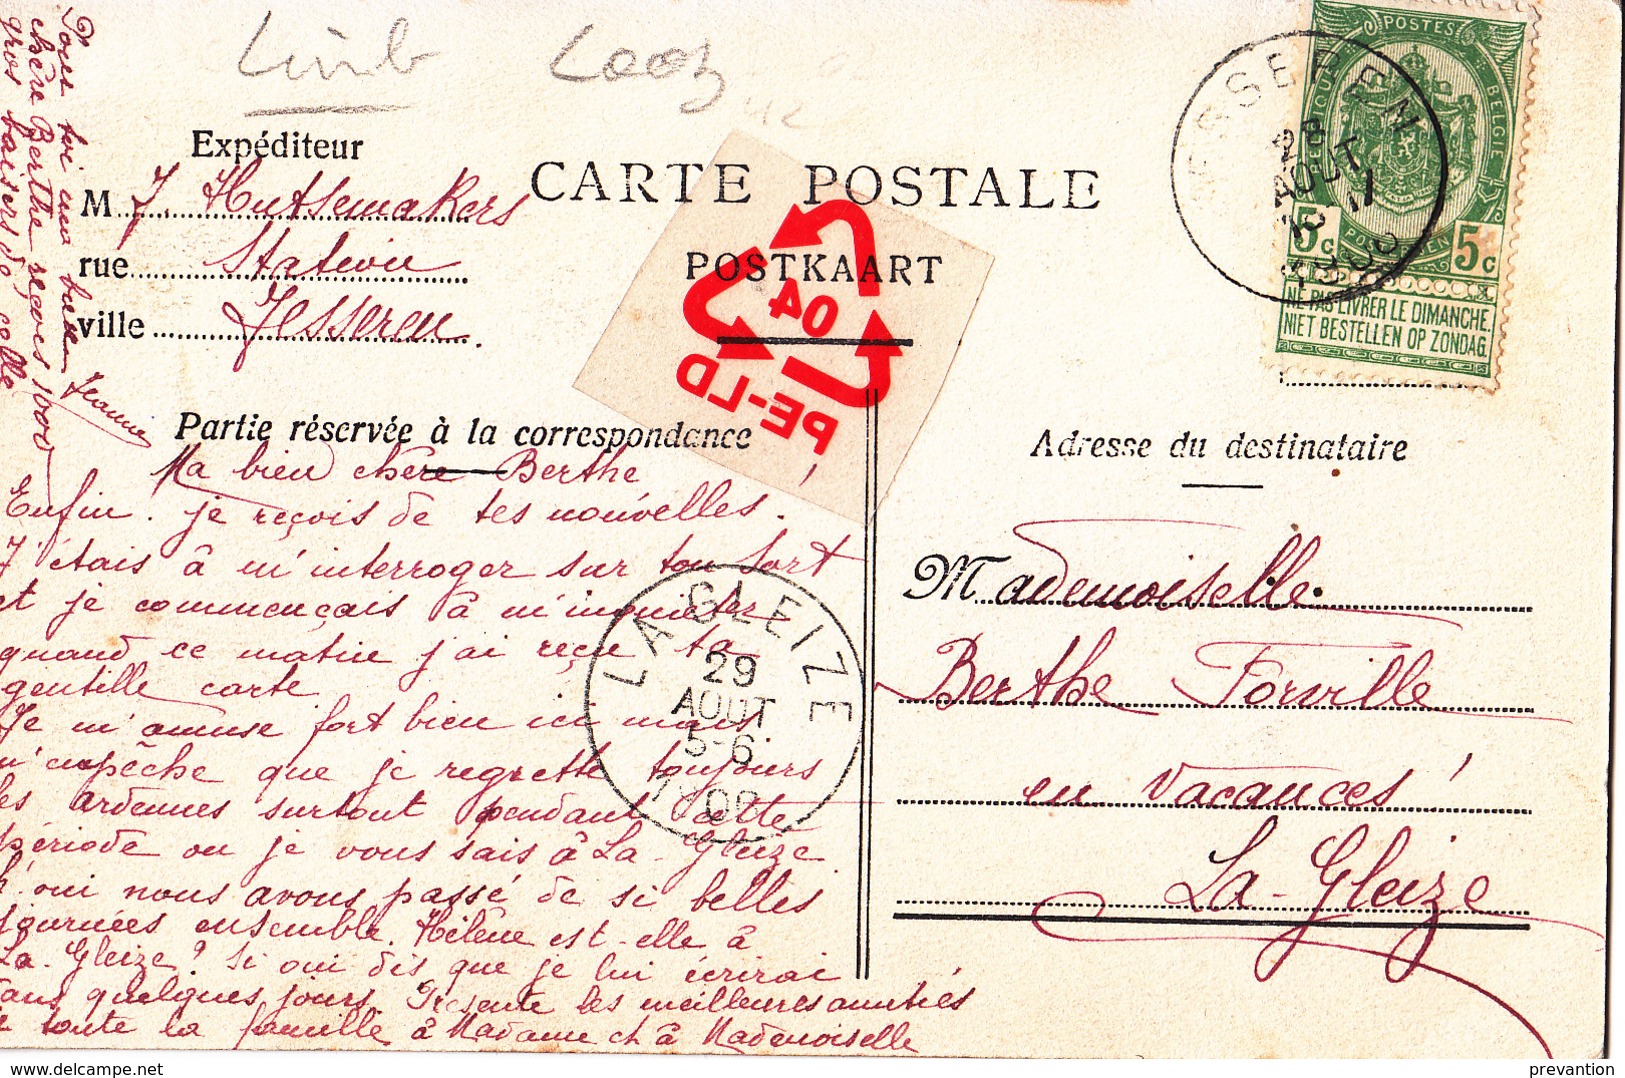 Limb Looz
Expéditeur
M J. Hutsemakers
rue Station
ville Jesseren.
CARTE POSTALE
POSTKAART
04
PE-LD
POSTES
BELGIQUE
BELGIE
5c 5c
POSTERIJEN
NE PAS LIVRER LE DIMANCHE.
NIET BESTELLEN OP ZONDAG.
JESSEREN
28
AOUT
1908
Partie réservée à la correspondance
Ma bien chère Berthe
Enfin. je reçois de tes nouvelles!
J'étais à m'interroger sur ton sort
et je commençais à m'inquiéter
quand ce matin j'ai reçu ta
gentille carte
Je m'amuse fort bien ici mais
n'empêche que je regrette toujours
les ardennes surtout pendant cette
période ou je vous sais à La-Gleize
où nous avons passé de si belles
journées ensemble. Hélène est-elle à
La-Gleize? Si oui dis que je lui écrirai
dans quelques jours. Présente les meilleures amitiés
de toute la famille à Madame et à Mademoiselle
Pour toi ma
chère Berthe reçoves 1000
gros baisers de celle
Jeanne
LA GLEIZE
29
AOUT
5-6
Adresse du destinataire
Mademoiselle.
Berthe Forville
en Vacances!
La-Gleize
delcampe.net
prevantion